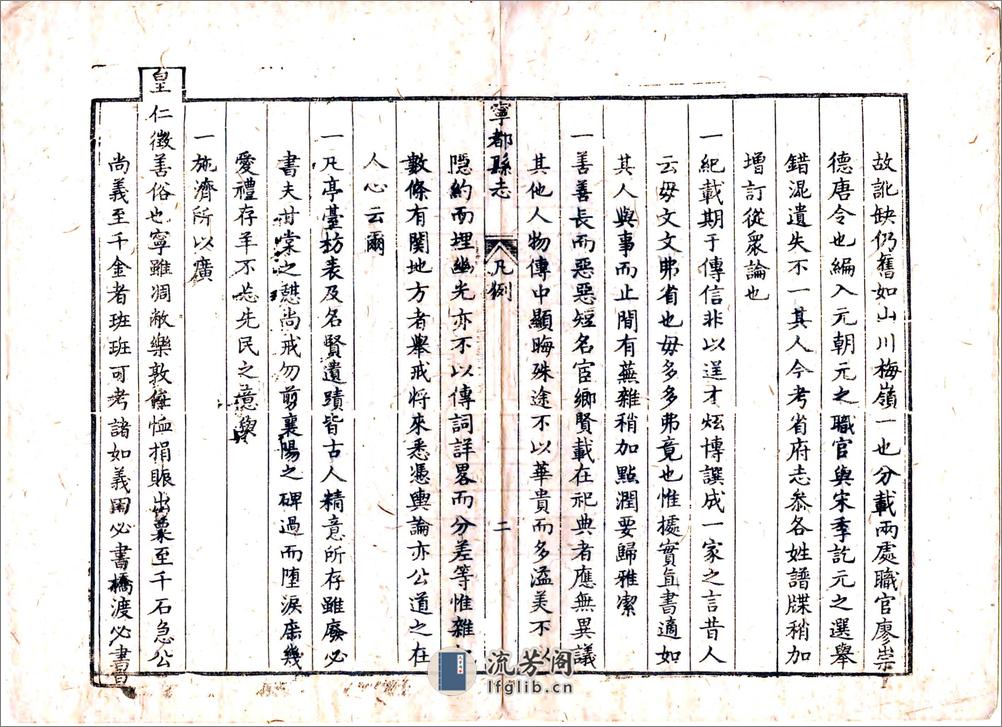 故訛缺仍舊如山川梅嶺一也分載兩處職官廖崇
德唐令也編入元朝元之職官與宋季訖元之選舉
錯混遺失不一其人今考省府志叅各姓譜牒稍加
增訂從衆論也
一紀載期于傳信非以逞才炫博譔成一家之言昔人
云毋文文弗省也毋多多弗竟也惟據實直書適如
其人與事而止間有蕪雜稍加點潤要歸雅潔
一善善長而惡惡短名宦鄉賢載在祀典者應無異議
其他人物傳中顯晦殊途不以華貴而多溢美不
寧都縣志
凡例
二
隱約而埋幽光亦不以傳詞詳畧而分差等惟雜
數條有関地方者舉戒將來悉憑輿論亦公道之在
人心云爾
一凡亭臺坊表及名賢遺蹟皆古人精意所存雖廢必
書夫甘棠之憇尚戒勿剪襄陽之碑過而墮淚庶幾
愛禮存羊不忘先民之意與
一施濟所以廣
皇仁徵善俗也寧雖凋敝樂敦任恤捐賑出粟至千石急公
尚義至千金者班班可考諸如義田必書橋渡必書
流芳阁
lfglib.cn